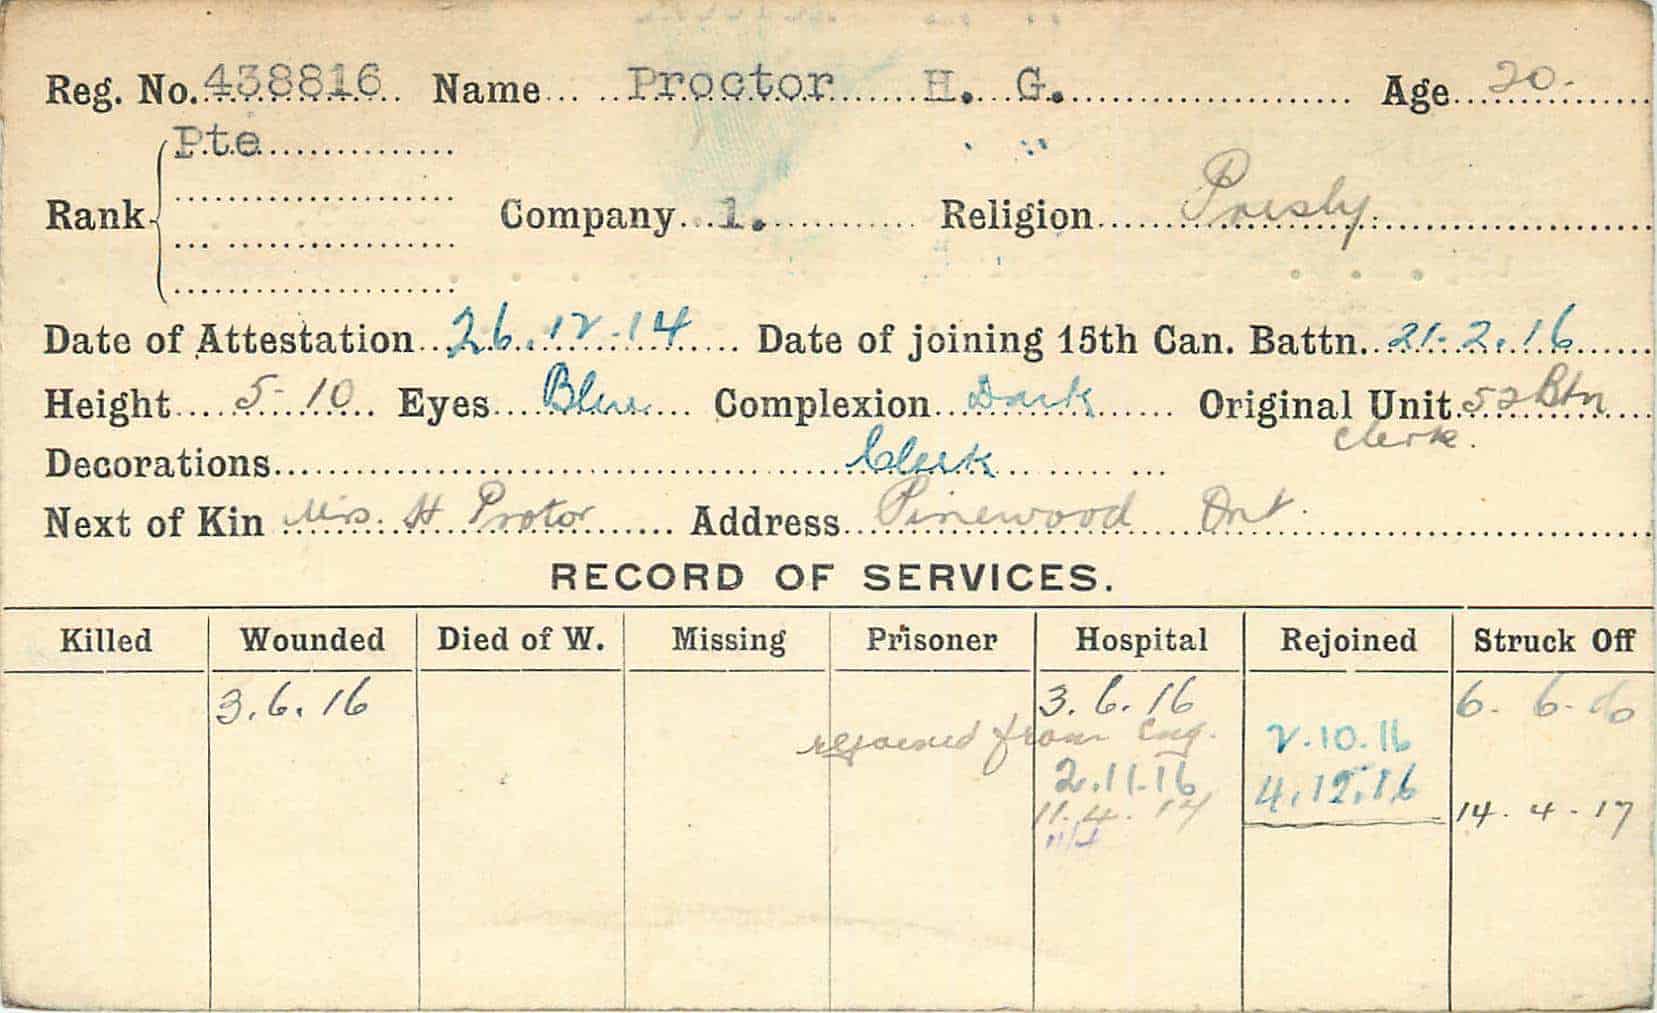 Reg. No. 438816 Name Proctor H. G. Age 20.
Pte
Rank Company 1. Religion Presby.
Date of Attestation 26.12.14 Date of joining 15th Can. Battn. 21.2.16
Height 5-10 Eyes Blue Complexion Dark Original Unit 52 Btn
clerk.
Decorations Clerk
Next of Kin Mrs. H Protor Address Pinewood Ont.
RECORD OF SERVICES.
Killed Wounded Died of W. Missing Prisoner Hospital Rejoined Struck Off
3.6.16 3.6.16 6.6.16
rejoined from Eng. 2.10.16
2.11.16 4.12.16
11.4.17 14.4.17